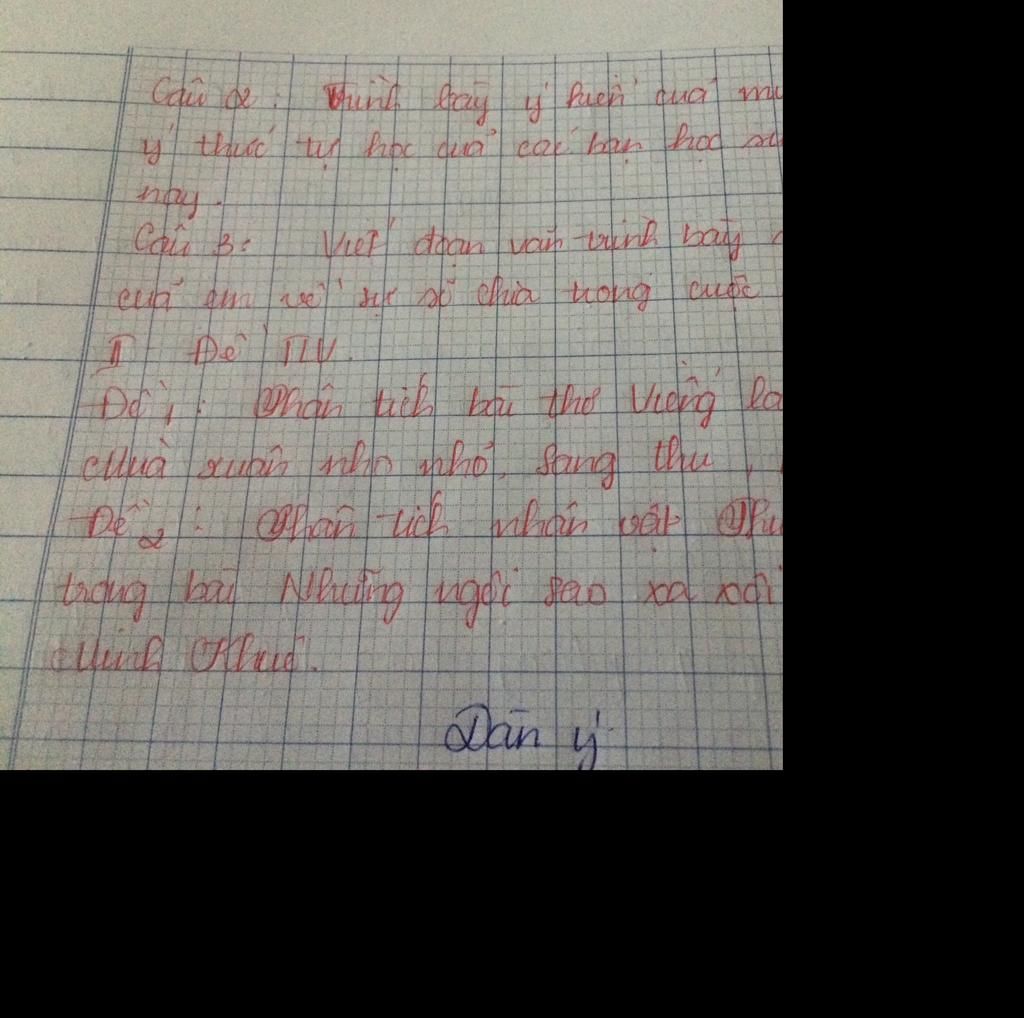 Câu 2: Trình bày ý kiến của
ý thức tự học của các bạn học
nay.
Câu 3: Viết đoạn văn trình bày
của em về sự sẻ chia trong cuộc
II Đề TLV.
Đề 1: Phân tích bài thơ Viếng
Mùa xuân nho nhỏ, Sang thu,
Đề 2: Phân tích nhân vật
trong bài Những ngôi sao xa xôi
Minh Khuê.
Dàn ý